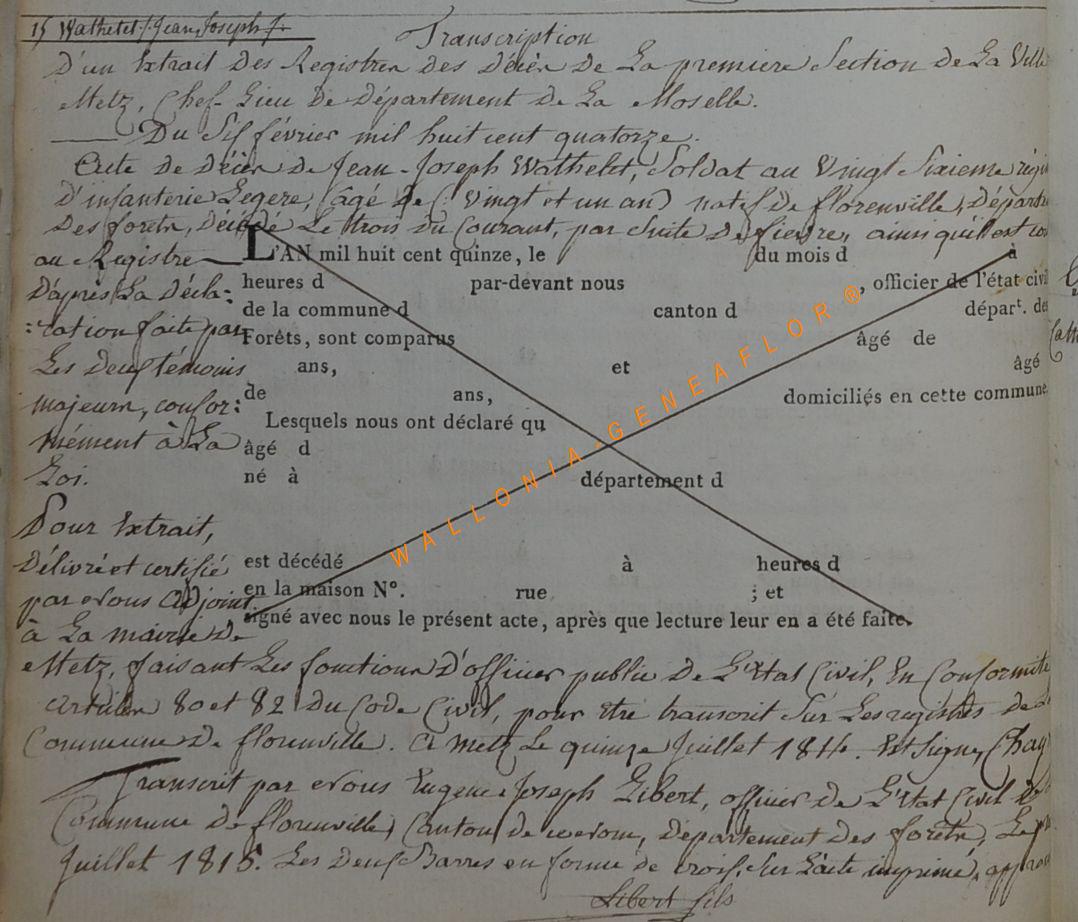 15 Wathelet /: Jean, Joseph /:
Transcription
D'un Extrait Des Registres des décès de La premiere Section de La Ville
Metz, Chef-Lieu de Département de La Moselle.
Du Six février mil huit cent quatorze.
Acte de décès de Jean-Joseph Wathelet, Soldat au Vingt Sixieme régi
D'infanterie Legere, (âgé de vingt et un ans) natif de florenville, Départe
Des forets, décédé Le trois du Courant, par Suite de fievre, ainsi qu'il est
au Registre
L'AN mil huit cent quinze, le du mois d à
heures d par-devant nous , officier de l'état civil
D'après La Décla:
de la commune d canton d départ. des
:ration faite par
Forêts, sont comparus âgé de
Les deux témoins
ans, et âgé
majeurs, confor:
de ans, domiciliés en cette commune
Lesquels nous ont déclaré qu
mément à La
âgé d
Loi.
né à département d
Pour Extrait,
Délivré et certifié
est décédé à heures d
par Nous Adjoint
en la maison N°. rue ; et
signé avec nous le présent acte, après que lecture leur en a été faite.
à La mairie de
Metz, faisant Les fonctions D'officier public de L'Etat Civil, En Conformité
articles 80 et 82 Du Code Civil, pour être transcrit Sur Les registres de
Commune de florenville. A Metz Le quinze Juillet 1814. Est Signé,
Transcrit par Nous Eugene Joseph Libert, officier de L'Etat Civil de
Commune de florenville, Canton de , département des forets, Le
Juillet 1815. Les deux Barres en forme de croix, Sur L'acte imprimé,
Libert fils
WALLONIA-GENEAFLOR ®